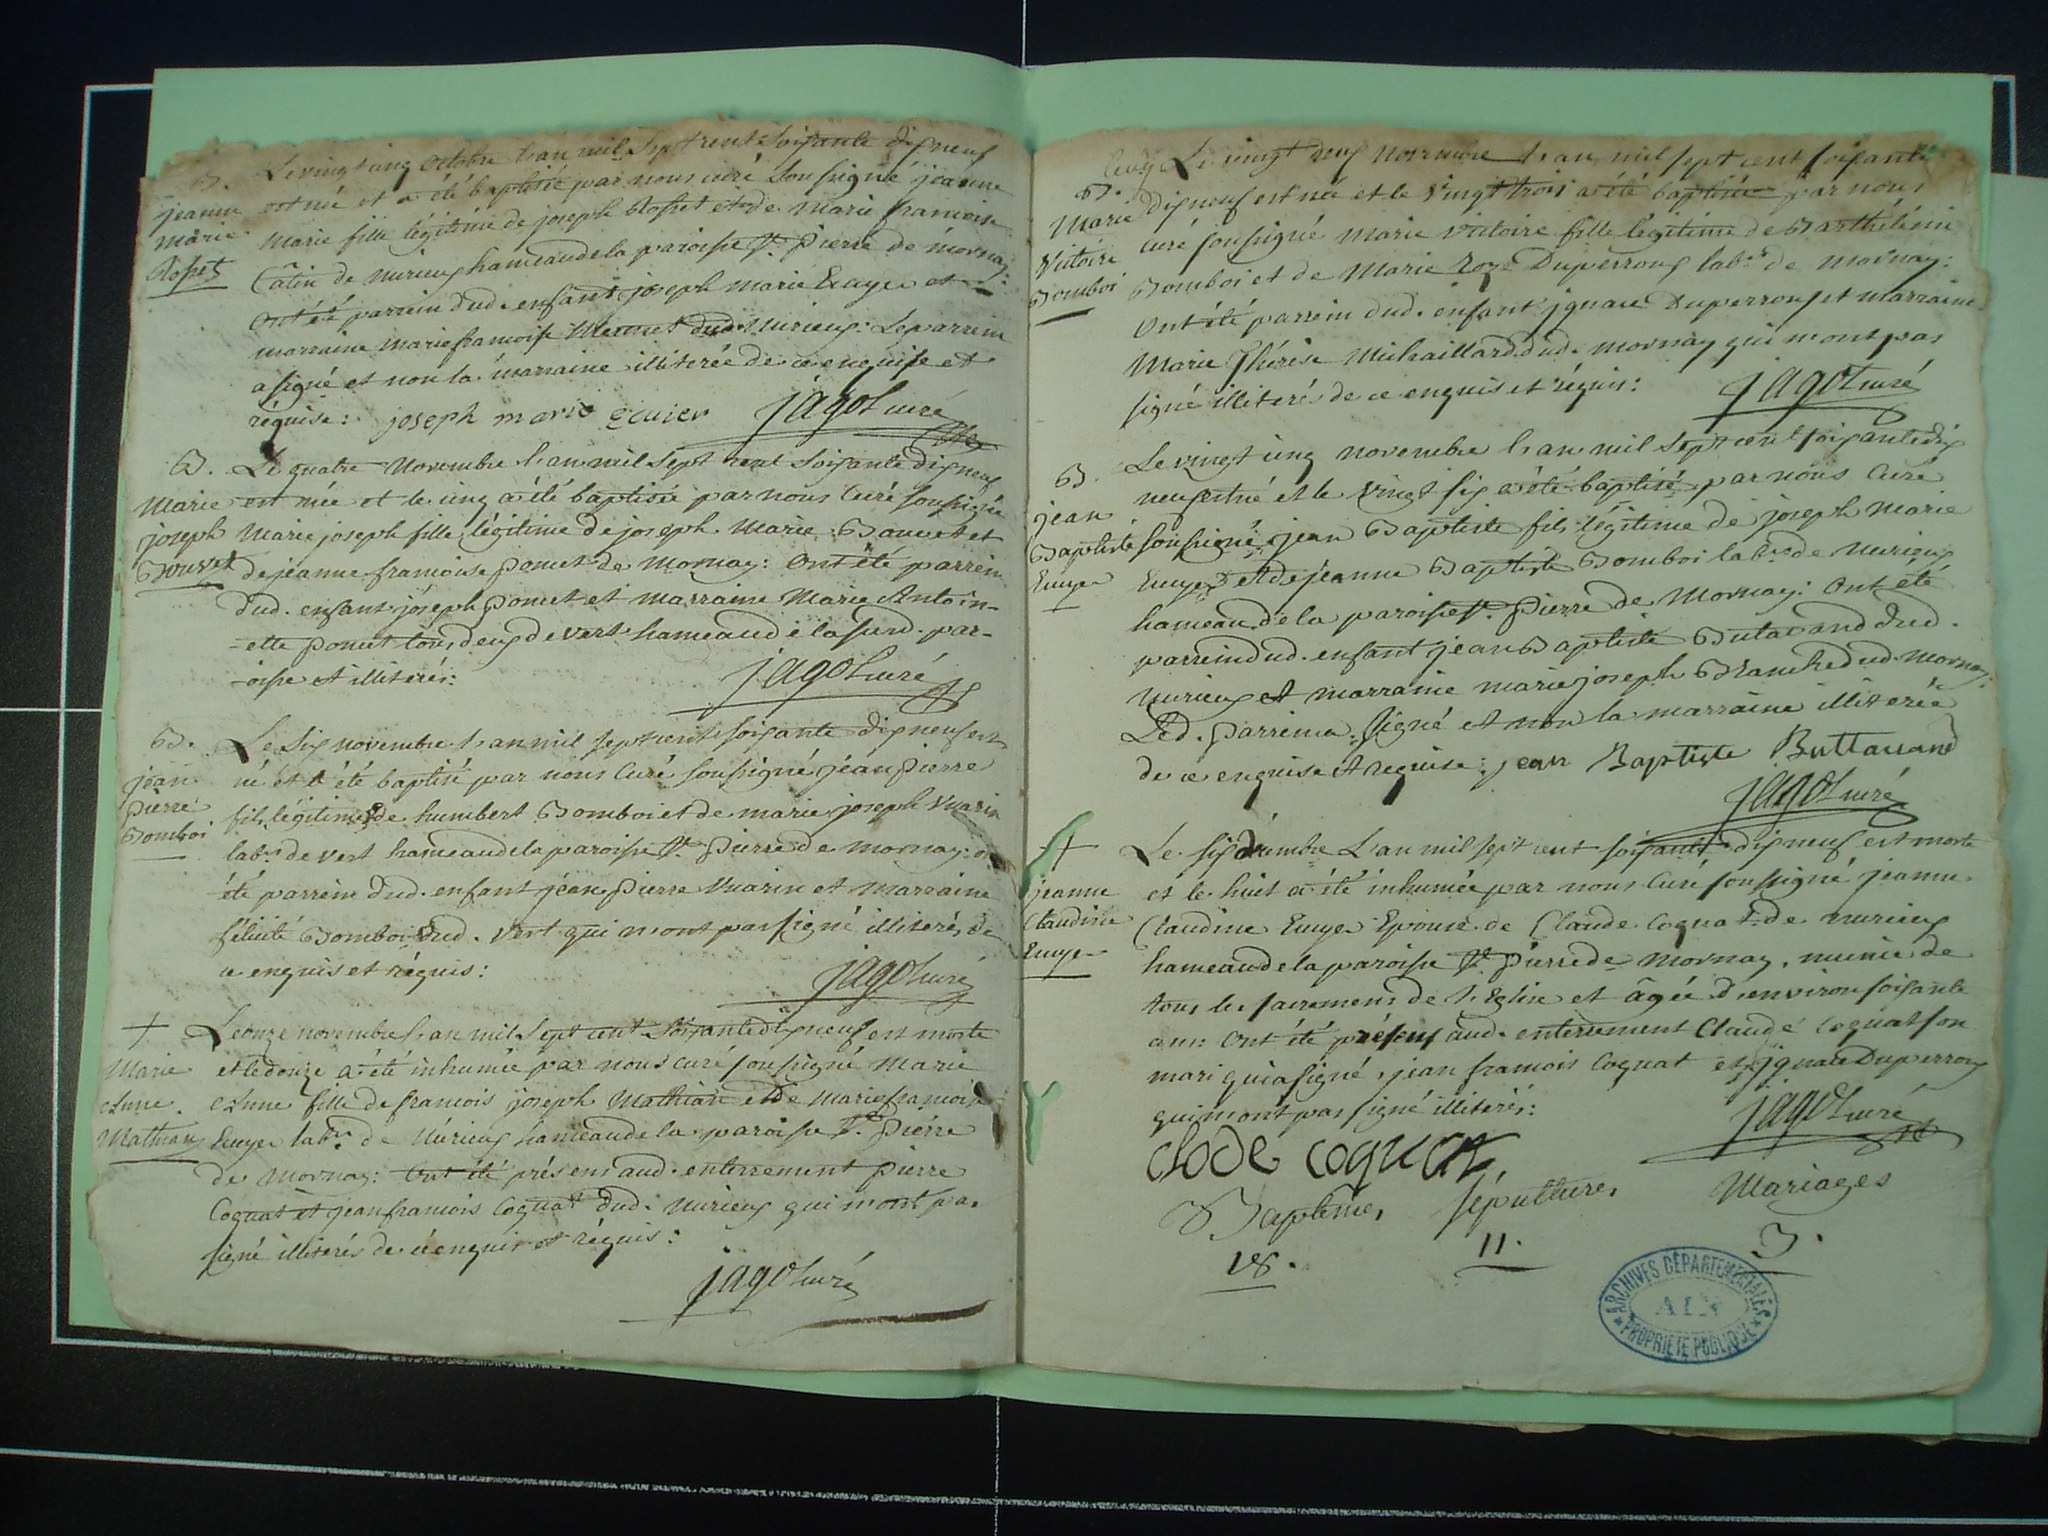 B.
jeanne
marie
Rosset
Le vingt cinq octobre l'an mil sept cent soixante dix neuf
est née et a été baptisée par nous curé soussigné jeanne
Marie fille légitime de joseph Rosset et de marie francoise
Câtin de nurieux hameau de la paroisse St. pierre de mornay:
ont été parrein dud. enfant joseph marie Ecuyer et
marraine marie francoise Mermet dud. Nurieux: Le parrein
a signé et non la marraine illiterée de ce enquise et
réquise: joseph marie Ecuier jagot curé
B.
Marie
joseph
Bouvet
Le quatre Novembre l'an mil sept cent soixante dix neuf
est née et le cinq a été baptisée par nous Curé soussigné
Marie joseph fille légitime de joseph Marie Bouvet et
de jeanne francoise poncet de Mornay: Ont été parrein
dud. enfant joseph poncet et marraine Marie Antoin-
-ette poncet tous deux de vert hameau de la susd. par-
-oisse et illiterés: jagot curé
B.
jean
pierre
Bomboi
Le six novembre l'an mil sept cent soixante dix neuf est
né et a été baptisé par nous Curé soussigné jean pierre
fils légitime de humbert Bomboi et de marie joseph Vuarin
labr. de vert hameau de la paroisse St. pierre de mornay: ont
été parrein dud. enfant jean pierre Vuarin et marraine
félicité Bomboi dud. vert qui n'ont pas signé illiterés de
ce enquis et réquis: jagot curé
+
Marie
Anne
Mathian
Le onze novembre l'an mil sept cent soixante dix neuf est morte
et le douze a été inhumée par nous curé soussigné Marie
Anne fille de francois joseph Mathian et de Marie francoise
Ecuyer labr. de Nurieux hameau de la paroisse St. pierre
de Mornay: Ont été présens aud. enterrement pierre
Cognat et jean francois Cognat dud. Nurieux qui n'ont pas
signé illiterés de ce enquis et réquis:
jagot curé
B.
Marie
Victoire
Bomboi
Le vingt deux novembre l'an mil sept cent soixante
dix neuf est née et le vingt trois a été baptisée par nous
curé soussigné Marie victoire fille légitime de Barthélémi
Bomboi et de Marie Roze Duperroux labr. de mornay:
Ont été parrein dud. enfant jgnace Duperroux et marraine
Marie Thérèse Michaillard dud. mornay qui n'ont pas
signé illiterés de ce enquis et réquis: jagot curé
B.
jean
Baptiste
Ecuyer
Le vingt cinq novembre l'an mil sept cent soixante dix
neuf est né et le vingt six a été baptisé par nous Curé
soussigné jean Baptiste fils légitime de joseph Marie
Ecuyer et de jeanne Baptiste Bomboi labr. de Nurieux
hameau de la paroisse St. pierre de Mornay: Ont été
parrein dud. enfant jean Baptiste Butavand dud.
Nurieux et marraine marie joseph Blanche dud. Mornay:
Led. parrein a signé et non la marraine illiterée
de ce enquise et requise: jean Baptiste Buttavand
jagot curé
+
jeanne
Claudine
Ecuyer
Le six décembre L'an mil sept cent soixante dix neuf est morte
et le huit a été inhumée par nous Curé soussigné jeanne
Claudine Ecuyer Epouse de Claude Cognat de nurieux
hameau de la paroisse St. pierre de Mornay, munie de
tous les sacremens de l'Eglise et âgée d'environ soixante
ans: Ont été présens aud. enterrement Claude Cognat son
mari qui a signé, jean francois Cognat et jgnace Duperroux
qui n'ont pas signé illiterés: jagot curé
clode cognat
Baptêmes, sépultures, Mariages
18. 11. 3.
ARCHIVES DÉPARTEMENTALES
AIN
PROPRIÉTÉ PUBLIQUE